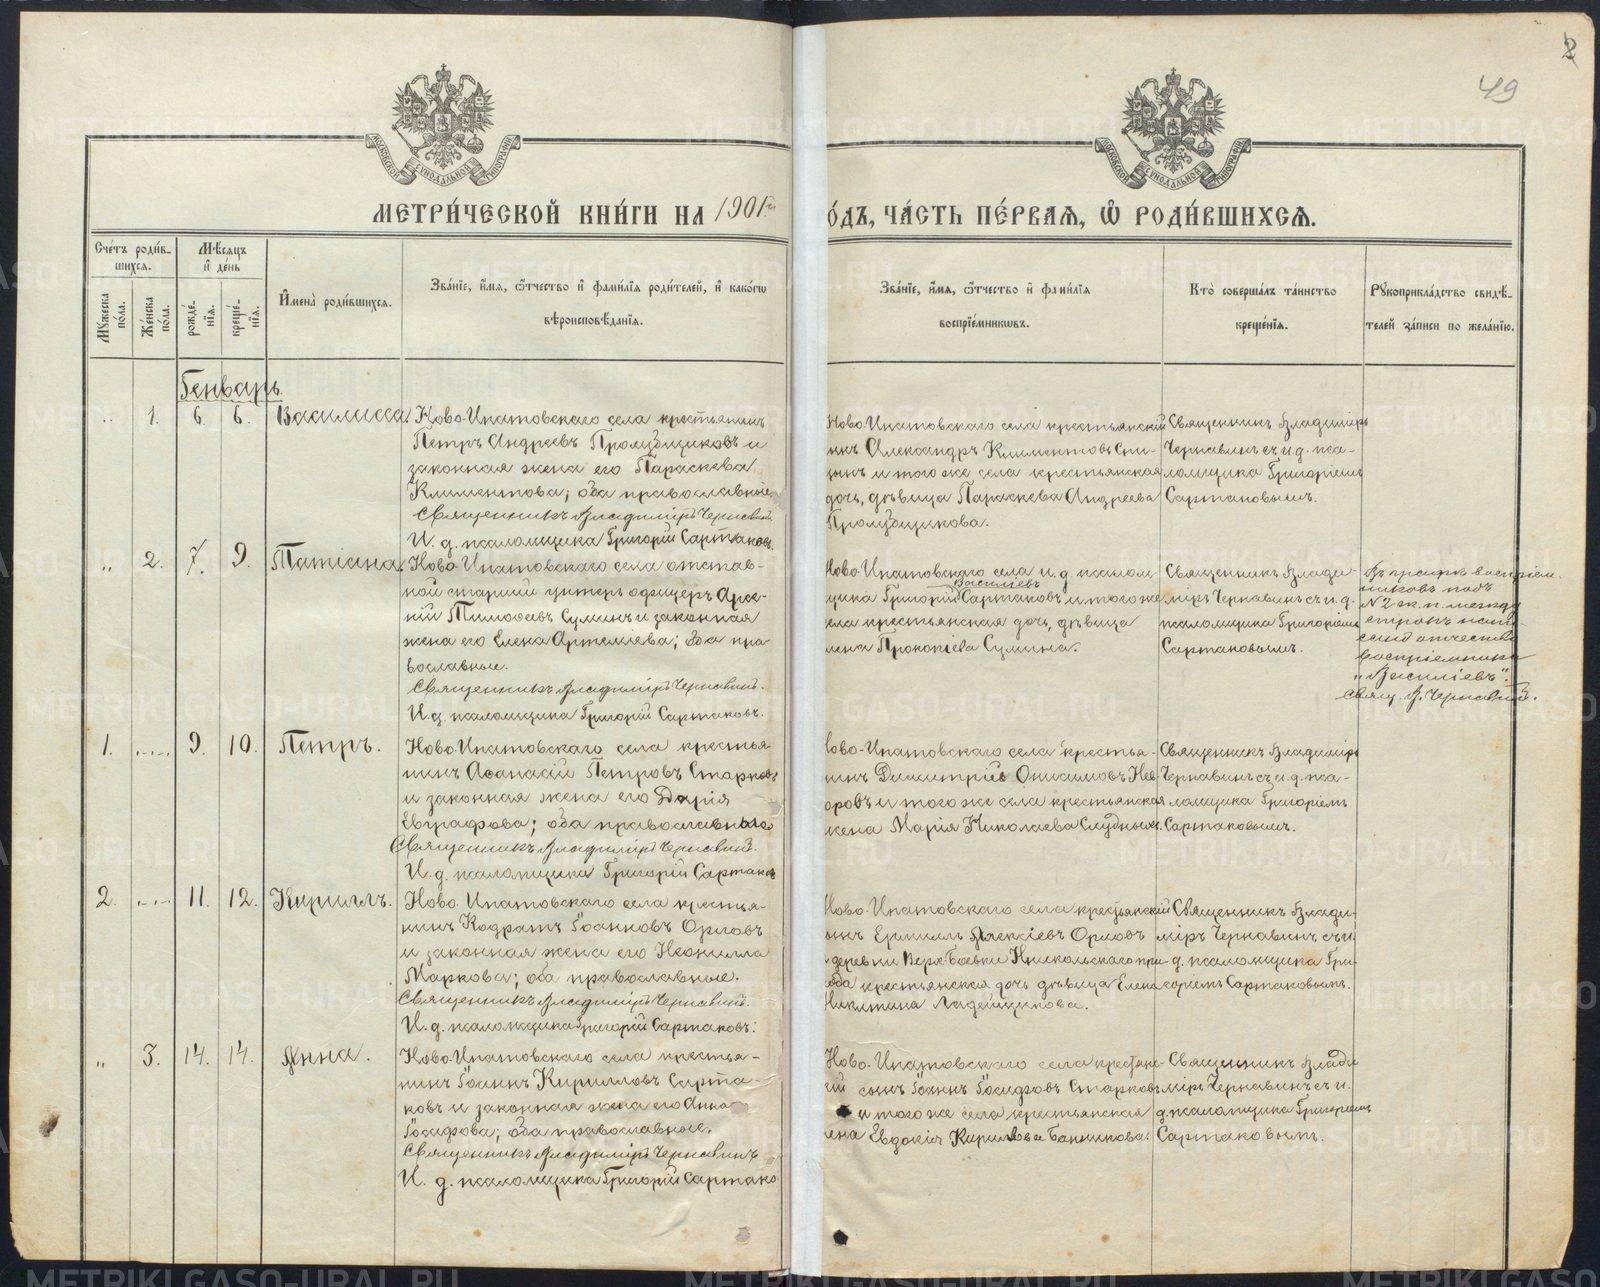 2
49
МОСКОВСКОЙ СѴНОДАЛЬНОЙ ТИПОГРАФІИ
МОСКОВСКОЙ СѴНОДАЛЬНОЙ ТИПОГРАФІИ
МЕТРИ́ЧЕСКОЙ КНИ́ГИ НА 1901 й
О́ДЪ, ЧА́СТЬ ПЕ́РВАЯ, Ѡ РОДИ́ВШИХСЯ.
Сче́тъ роди́в-
шихся.
Мѣ́сяцъ
и де́нь
Му́жеска по́ла.
Же́нска по́ла.
рожде́-нія.
креще́-нія.
Имена̀ роди́вшихся.
Зва́ніе, и́мя, о́тчество и фами́лія роди́телей, и како́гѡ
вѣроисповѣ́данія.
Зва́ніе, и́мя, о́тчество и фами́лія
воспріе́мникѡвъ.
Кто̀ соверша́лъ та́инство
креще́нія.
Рукоприкла́дство свидѣ́-
телей за́писи по жела́нію.
Генварь.
1. 6. 6. Василисса.
Ново-Ипатовскаго села крестьянинъ
Петръ Андреевъ Промубщиковъ и
законная жена его Параскева
Климентова; оба православные.
Священникъ Владиміръ Чернавинъ.
И. д. псаломщика Григорій Сартаковъ.
Ново-Ипатовскаго села крестьянскій
Александръ Климентовъ
и того же села крестьянская
дочь, дѣвица Параскева Андреева
Промубщикова.
Священникъ Владиміръ
Чернавинъ съ и. д. пса-
ломщика Григоріемъ
Сартаковымъ.
2. 7. 9. Татіана.
Ново-Ипатовскаго села отстав-
ной старшій унтеръ офицеръ Арсе-
ній Тимоѳеевъ Суминъ и законная
жена его Елена Артемиева; оба пра-
вославные.
Священникъ Владиміръ Чернавинъ.
И. д. псаломщика Григорій Сартаковъ.
Ново-Ипатовскаго села и. д. псалом-
Василіевъ
щика Григорій Сартаковъ и того же
села крестьянская дочь, дѣвица
Прокопіева Сумина.
Священникъ Влади-
міръ Чернавинъ съ и. д.
псаломщика Григоріемъ
Сартаковымъ.
Въ графѣ воспріем-
никовъ подъ
№ 2 ж. п. между
строкъ напи-
сано отчество
воспріемника
"Василіевъ".
Свящ. В. Чернавинъ.
1. 9. 10. Петръ.
Ново-Ипатовскаго села крестья-
нинъ Аѳанасій Петровъ Старковъ
и законная жена его Дарія
Евграфова; оба православные
Священникъ Владиміръ Чернавинъ.
И. д. псаломщика Григорій Сартаковъ
Ново-Ипатовскаго села крестья-
нинъ Димитрій Онисимовъ
и того же села крестьянская
жена Марія Николаева
Священникъ Владиміръ
Чернавинъ съ и. д. пса-
ломщика Григоріемъ
Сартаковымъ.
2. 11. 12. Кириллъ.
Ново-Ипатовскаго села крестья-
нинъ Кодратъ Іоанновъ Орловъ
и законная жена его Неонилла
Маркова; оба православные.
Священникъ Владиміръ Чернавинъ.
И. д. псаломщика Григорій Сартаковъ.
Ново-Ипатовскаго села крестьянскій
сынъ Ермилъ Алексіевъ Орловъ
и деревни Верх-Боевки Никольскаго при-
хода крестьянская дочь дѣвица Елена
Никитина Ладейщикова.
Священникъ Влади-
міръ Чернавинъ съ и.
д. псаломщика Гри-
горіемъ Сартаковымъ.
3. 14. 14. Анна.
Ново-Ипатовскаго села крестья-
нинъ Іоаннъ Кирилловъ Сарта-
ковъ и законная жена его Анна
Іосифова; оба православные.
Священникъ Владиміръ Чернавинъ
И. д. псаломщика Григорій Сартако
Ново-Ипатовскаго села крестьянс-
кій сынъ Іоаннъ Іосифовъ Старковъ
и того же села крестьянская
жена Евдокія Кирилова Банникова.
Священникъ Влади
міръ Чернавинъ съ и.
д. псаломщика Григоріемъ
Сартаковымъ.
METRIKI.GASO-URAL.RU